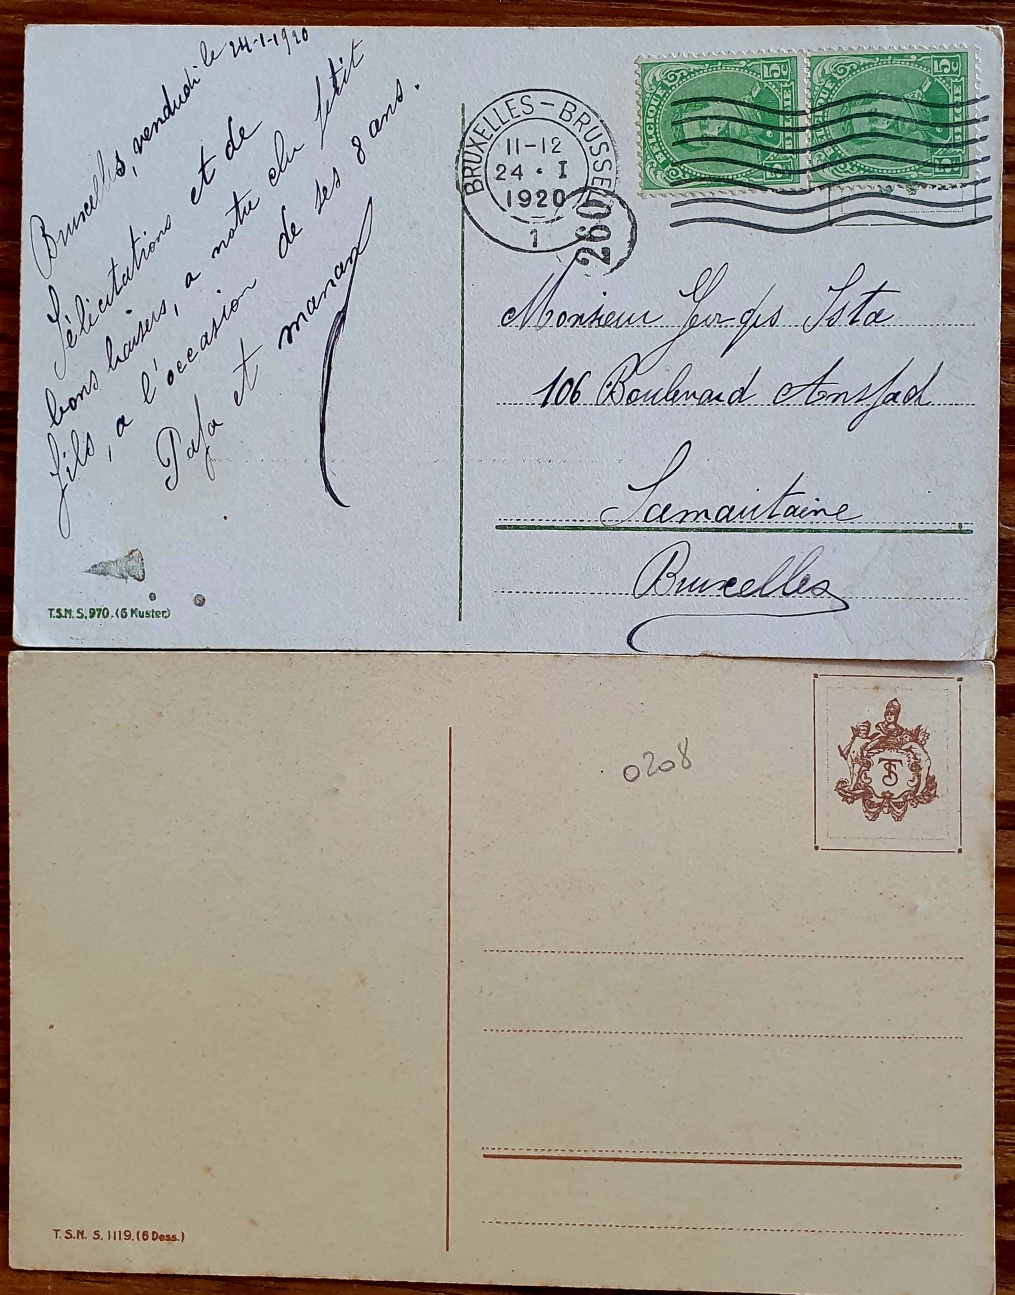 Bruxelles, vendredi le 24-1-1920
Félicitations et de
bons baisers, a notre cher petit
fils, a l'occasion de ses 8 ans.
Papa et maman
BRUXELLES-BRUSSEL
11-12
24 · I
1920
1
260
BELGIQUE 5c 5c BELGIE
BELGIQUE 5c 5c BELGIE
Monsieur Georges Ista
106 Boulevard Anspach
Samaritaine
Bruxelles
T.S.N. S. 970. (6 Kuster)
0208
TS
T.S.N. S. 1119. (6 Dess.)